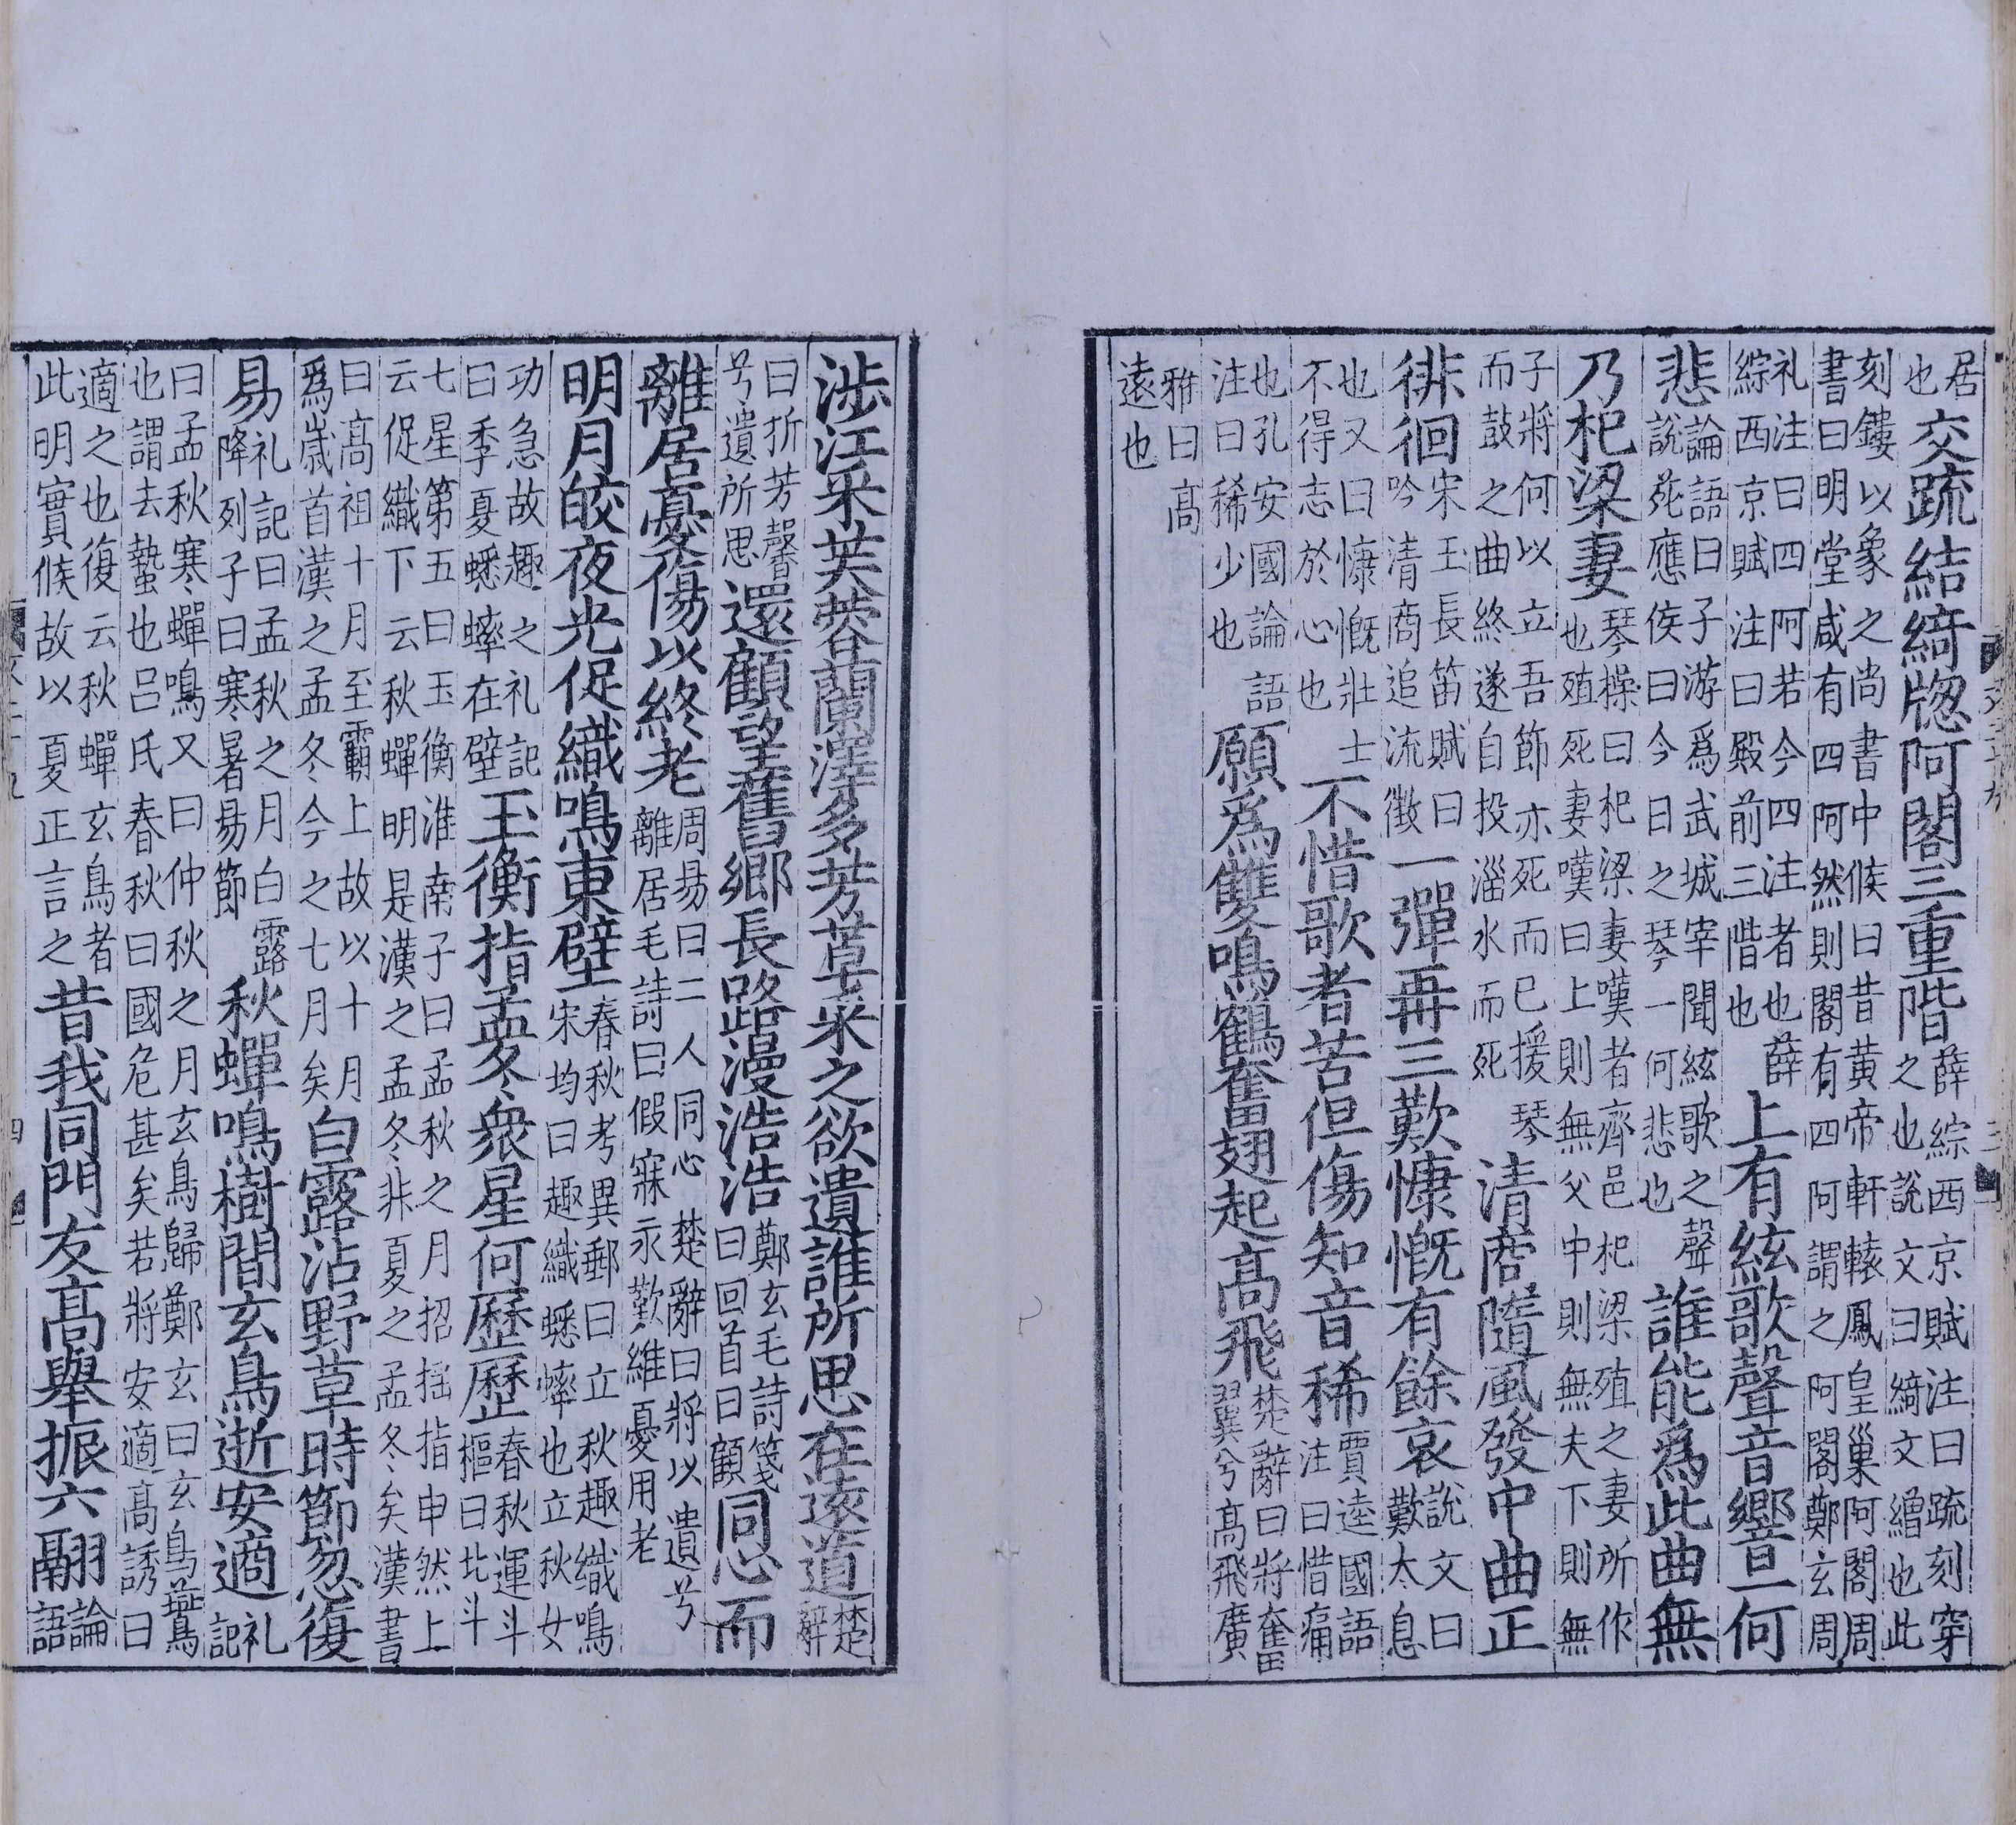 居也交疏結綺牎阿閣三重階薛綜西京賦注曰疏刻穿之也說文曰綺文繒也此
刻鏤以象之尚書中候曰昔黃帝軒轅鳳皇巢阿閣周書曰明堂咸有四阿然則閣有四阿謂之阿閣鄭玄周
礼注曰四阿若今四注者也薛綜西京賦注曰殿前三階也上有絃歌聲音響一何
悲論語曰子游爲武城宰聞絃歌之聲說苑應侯曰今日之琴一何悲也誰能爲此曲無
乃杞梁妻琴操曰杞梁妻嘆者齊邑杞梁殖之妻所作也殖死妻嘆曰上則無父中則無夫下則無
子將何以立吾節亦死而已援琴而鼓之曲終遂自投淄水而死清商隨風發中曲正
徘徊宋玉長笛賦曰吟清商追流徵一彈再三歎慷慨有餘哀說文曰歎太息
也又曰慷慨壯士不得志於心也不惜歌者苦但傷知音稀賈逵國語注曰惜痛
也孔安國論語注曰稀少也願爲雙鳴鶴奮翅起高飛楚辭曰將奮翼兮高飛廣
雅曰高遠也
涉江采芙蓉蘭澤多芳草采之欲遺誰所思在遠道楚辭
曰折芳馨兮遺所思還顧望舊鄉長路漫浩浩鄭玄毛詩箋曰回首曰顧同心而
離居憂傷以終老周易曰二人同心楚辭曰將以遺兮離居毛詩曰假寐永歎維憂用老
明月皎夜光促織鳴東壁春秋考異郵曰立秋趣織鳴宋均曰趣織蟋蟀也立秋女
功急故趣之礼記曰季夏蟋蟀在壁玉衡指孟冬衆星何歷歷春秋運斗樞曰北斗
七星第五曰玉衡淮南子曰孟秋之月招揺指申然上云促織下云秋蟬明是漢之孟冬非夏之孟冬矣漢書
曰高祖十月至霸上故以十月爲歲首漢之孟冬今之七月矣白露沾野草時節忽復
易礼記曰孟秋之月白露降列子曰寒暑易節秋蟬鳴樹間玄鳥逝安適礼記
曰孟秋寒蟬鳴又曰仲秋之月玄鳥歸鄭玄曰玄鳥鷰也謂去蟄也呂氏春秋曰國危甚矣若將安適高誘曰
適之也復云秋蟬玄鳥者此明實候故以夏正言之昔我同門友高舉振六翮論語
四